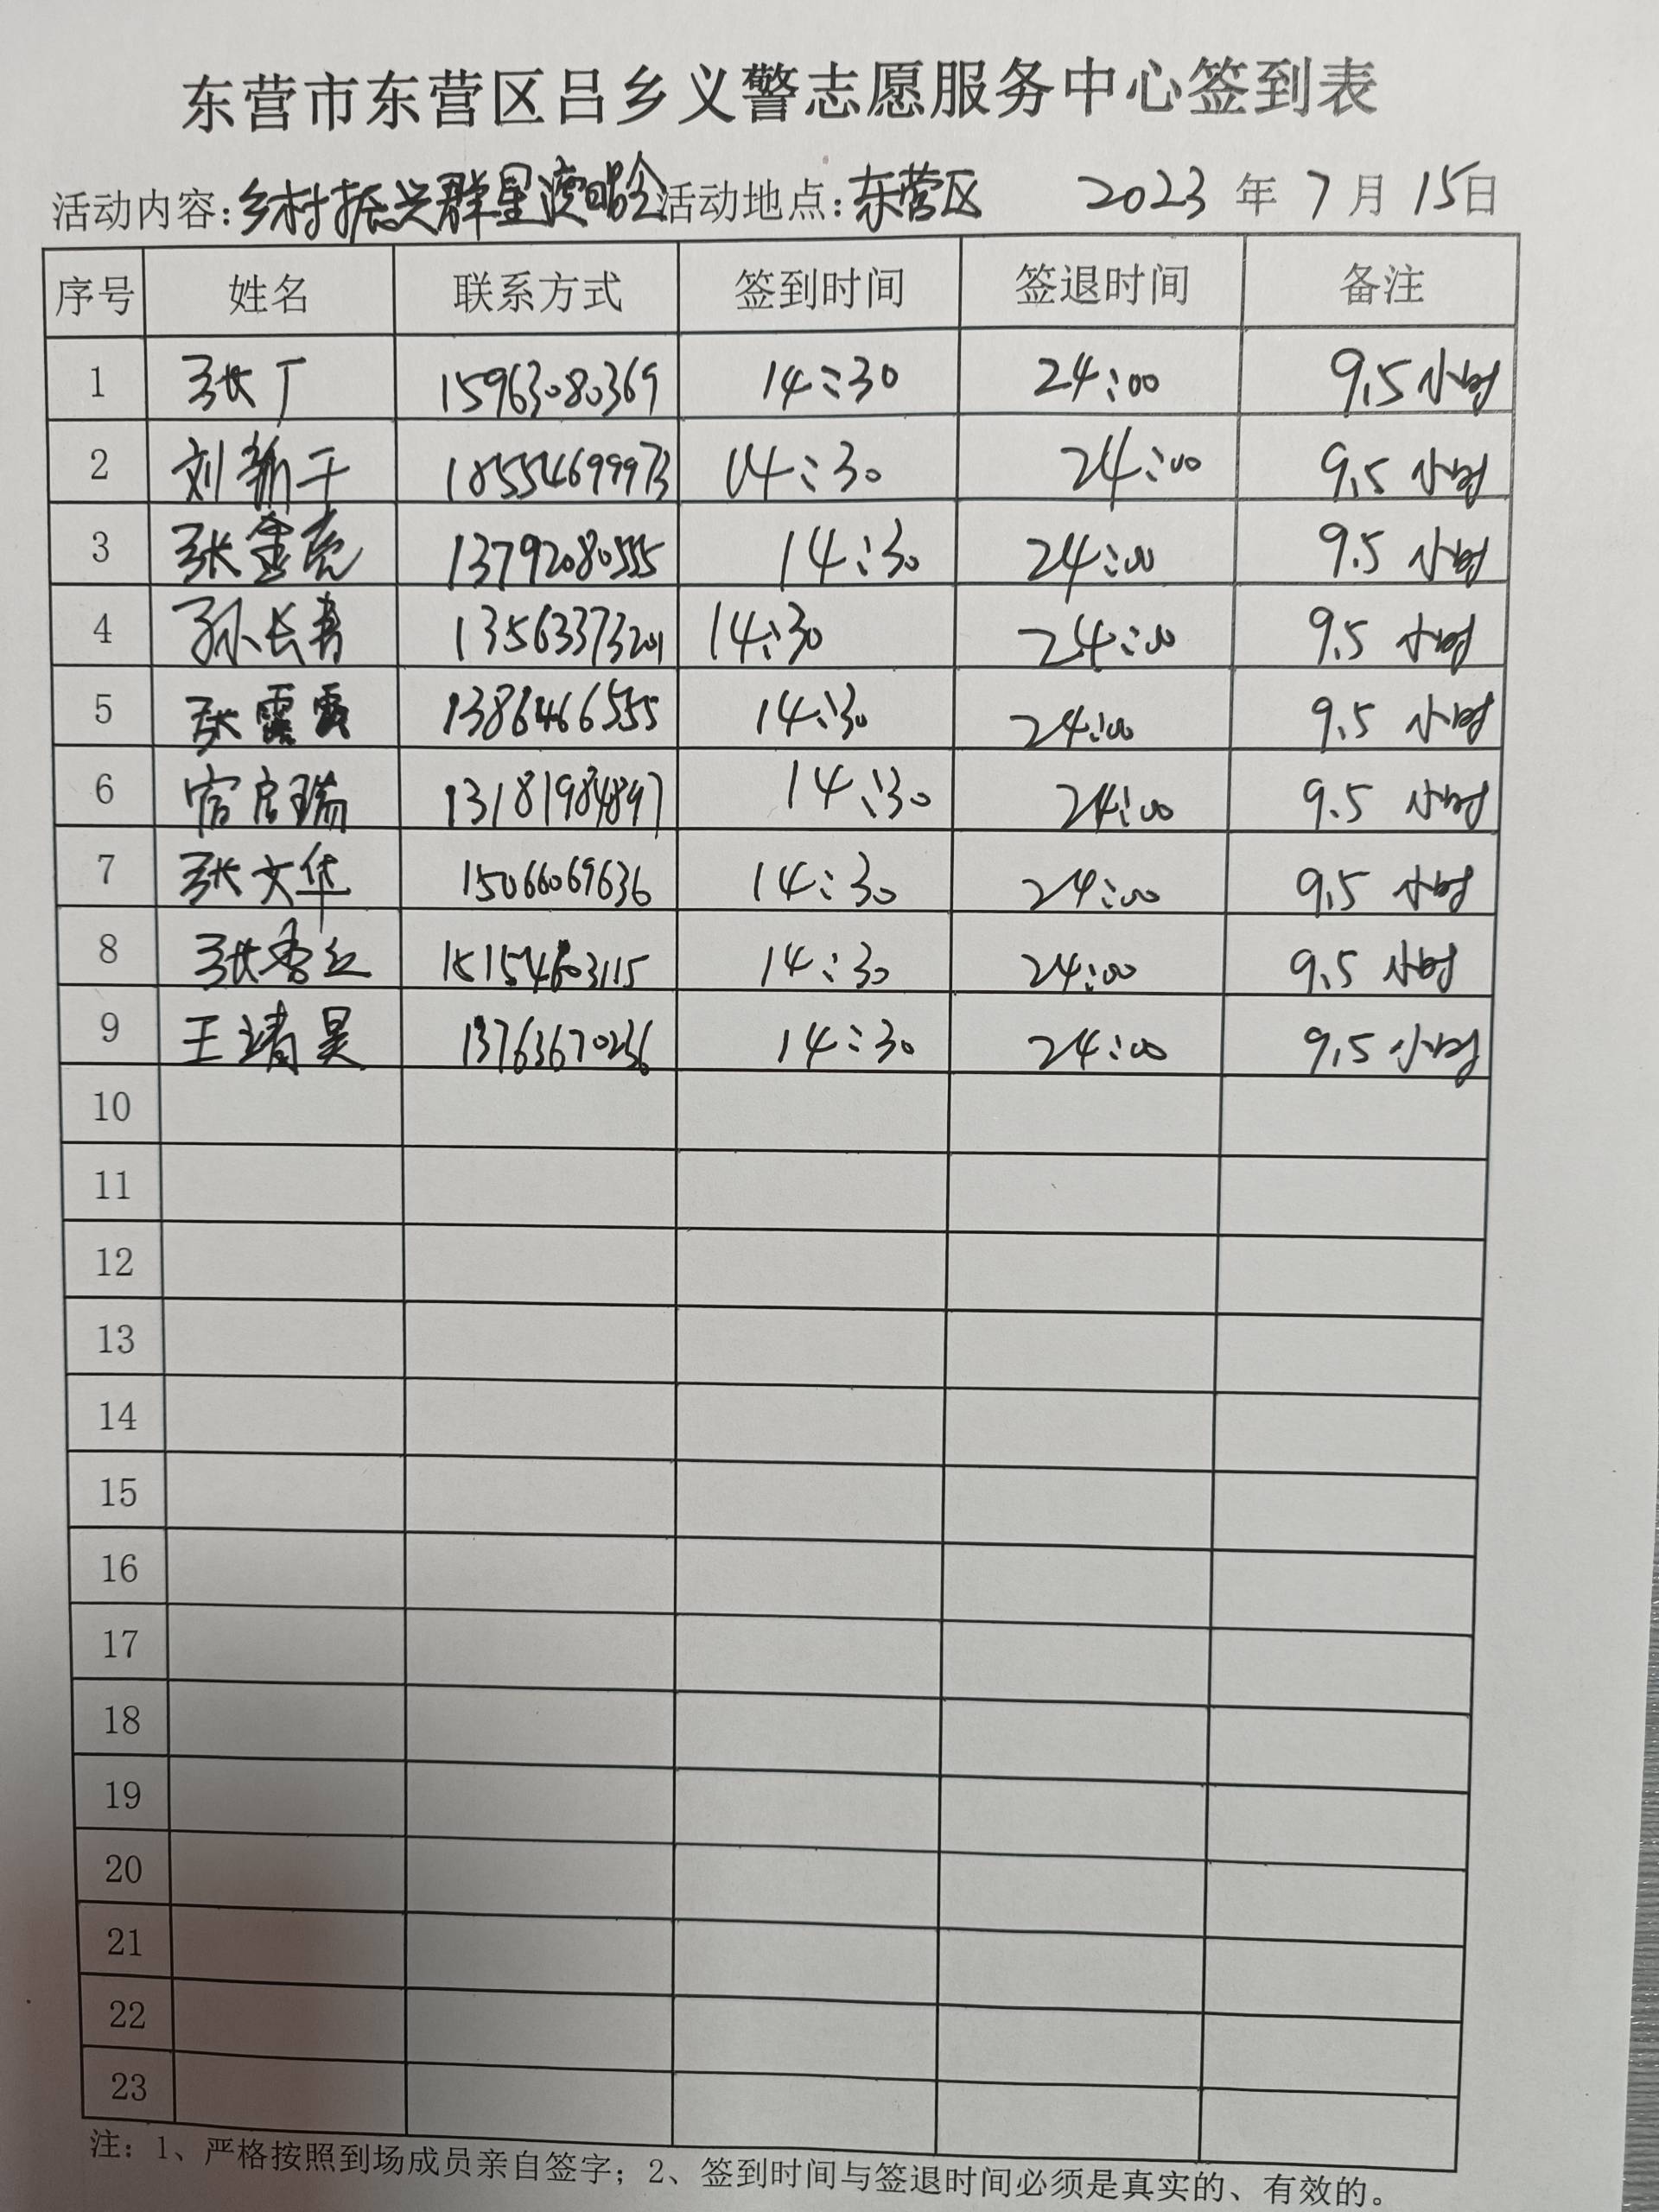 东营市东营区吕乡义警志愿服务中心签到表
活动内容:乡村振兴群星演唱会 活动地点:东营区 2023年7月15日
序号 姓名 联系方式 签到时间 签退时间 备注
1 张广 15963080369 14:30 24:00 9.5小时
2 刘新干 18554699973 14:30 24:00 9.5小时
3 张金亮 13792080555 14:30 24:00 9.5小时
4 孙长青 13563373201 14:30 24:00 9.5小时
5 张露露 14:30 24:00 9.5小时
6 13181984897 14:30 24:00 9.5小时
7 张文华 15066069636 14:30 24:00 9.5小时
8 张秀红 14:30 24:00 9.5小时
9 王靖昊 14:30 24:00 9.5小时
10
11
12
13
14
15
16
17
18
19
20
21
22
23
注:1、严格按照到场成员亲自签字;2、签到时间与签退时间必须是真实的、有效的。